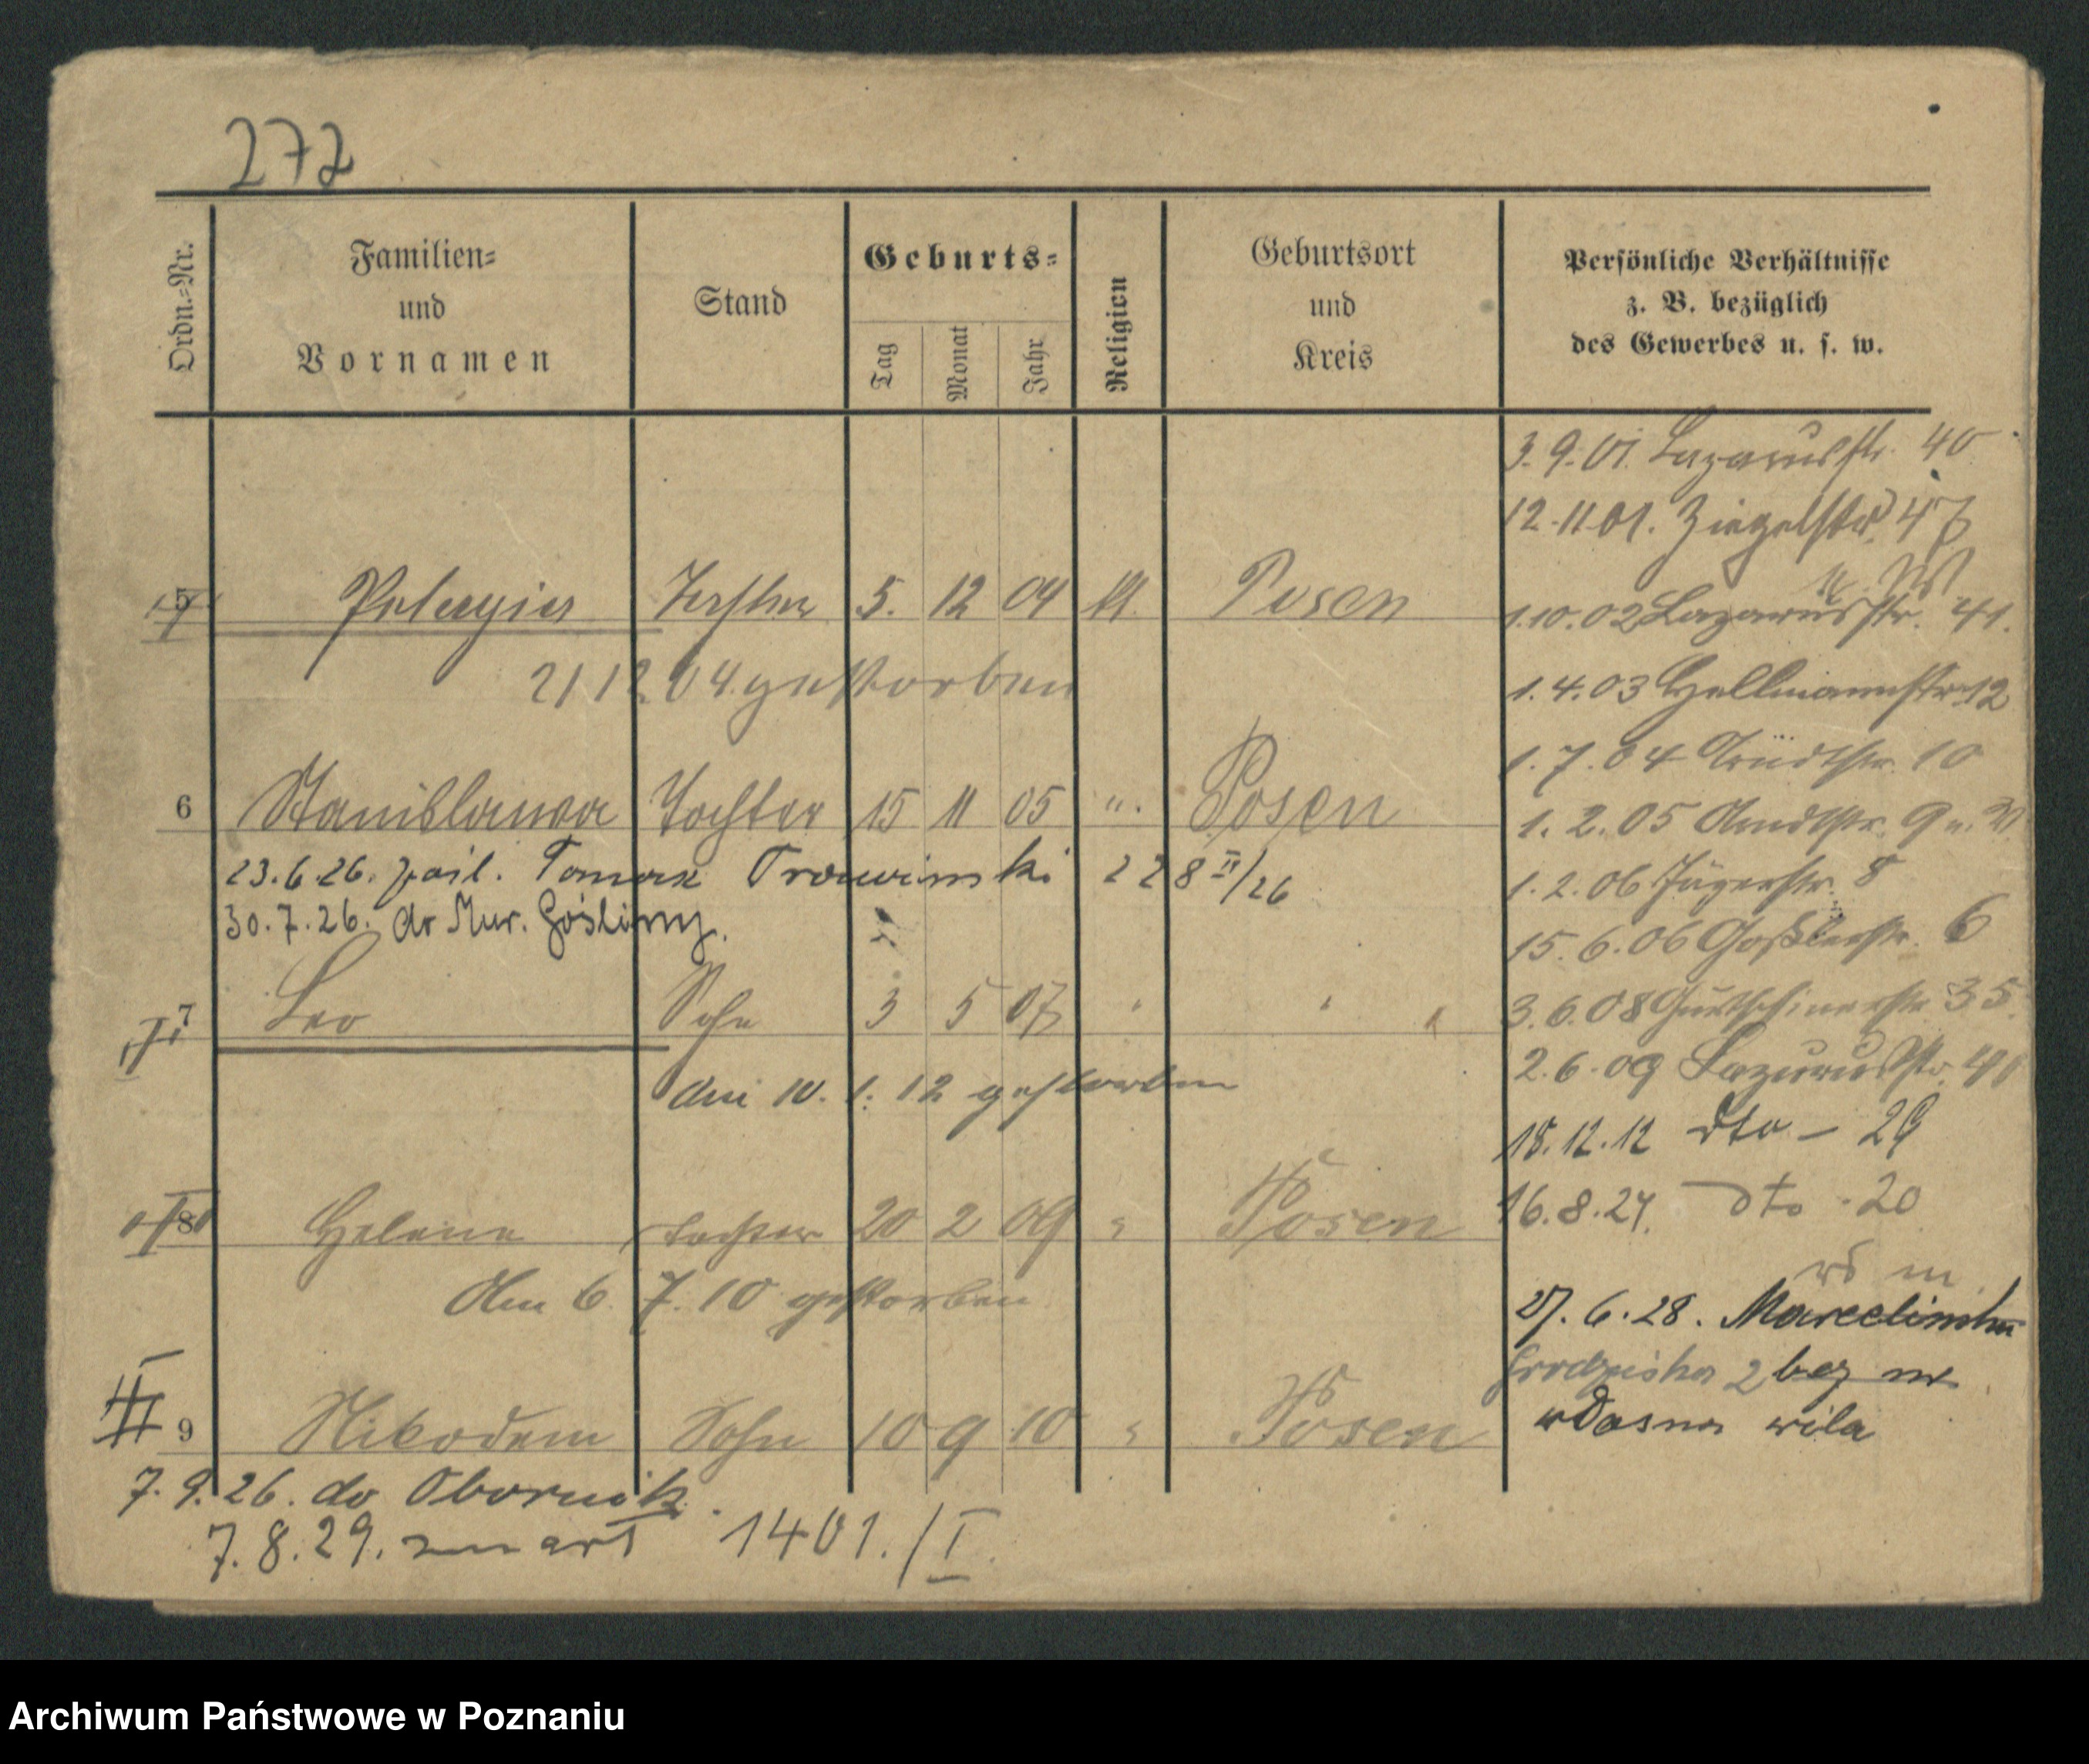 272
Ordn.-Nr.
Familien- und Vornamen
Stand
Geburts-
Tag
Monat
Jahr
Religion
Geburtsort und Kreis
Persönliche Verhältnisse z. B. bezüglich des Gewerbes u. s. w.
3.9.01. Lazarusstr. 40
12.11.01. Ziegelstr. 47
5 Pelagia Tochter 5. 12 04 kt. Posen
1.10.02 Lazarusstr. 41.
21 12 04 gestorben
1.4.03 Hellmannstr. 12
1.7.04 10
6 Stanislawa Tochter 15 11 05 ". Posen
1.2.05 Arndtstr. 9
23.6.26. Tomasz 228 II/26
1.2.06 Jägerstr. 8
30.7.26. do Mur. Gośliny.
15.6.06 Goßlerstr. 6
7 Leo Sohn 3 5 07 " " "
3.6.08 Gurtschinerstr 35.
2.6.09 Lazarusstr. 41
den 10. 1. 12 gestorben
18.12.12 dto – 29
8 Helene Tochter 20 2 09 " Posen
16.8.24. dto - 20
Am 6. 7. 10 gestorben
27.6.28. Marcelińska
Grodziska 2 bez nr.
9 Nikodem Sohn 10 9 10 " Posen
własna wila
7.9.26. do Obornik.
7.8.29. 1401./I.
Archiwum Państwowe w Poznaniu